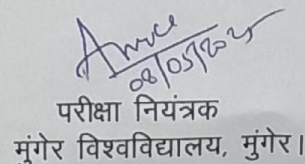 08/05/2025
परीक्षा नियंत्रक
मुंगेर विश्वविद्यालय, मुंगेर।